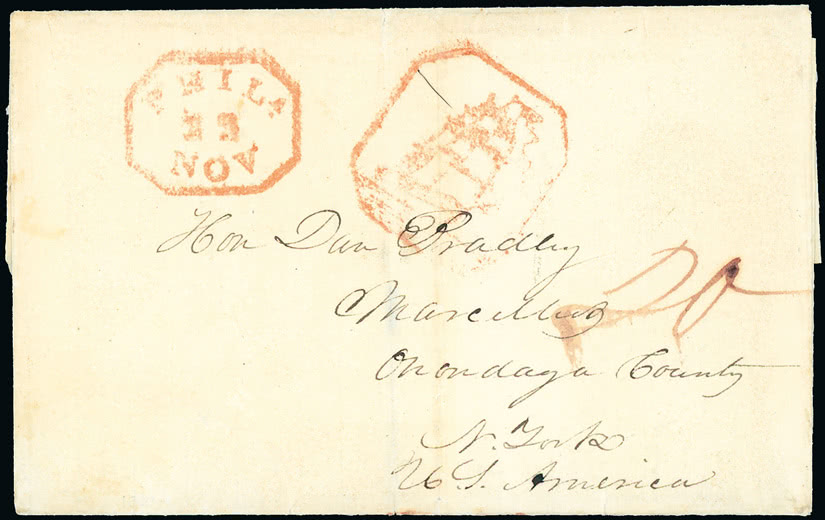 PHILA
NOV
Hon Dan Bradley
Marcellus
20
Onondaga County
N. York
U. S. America